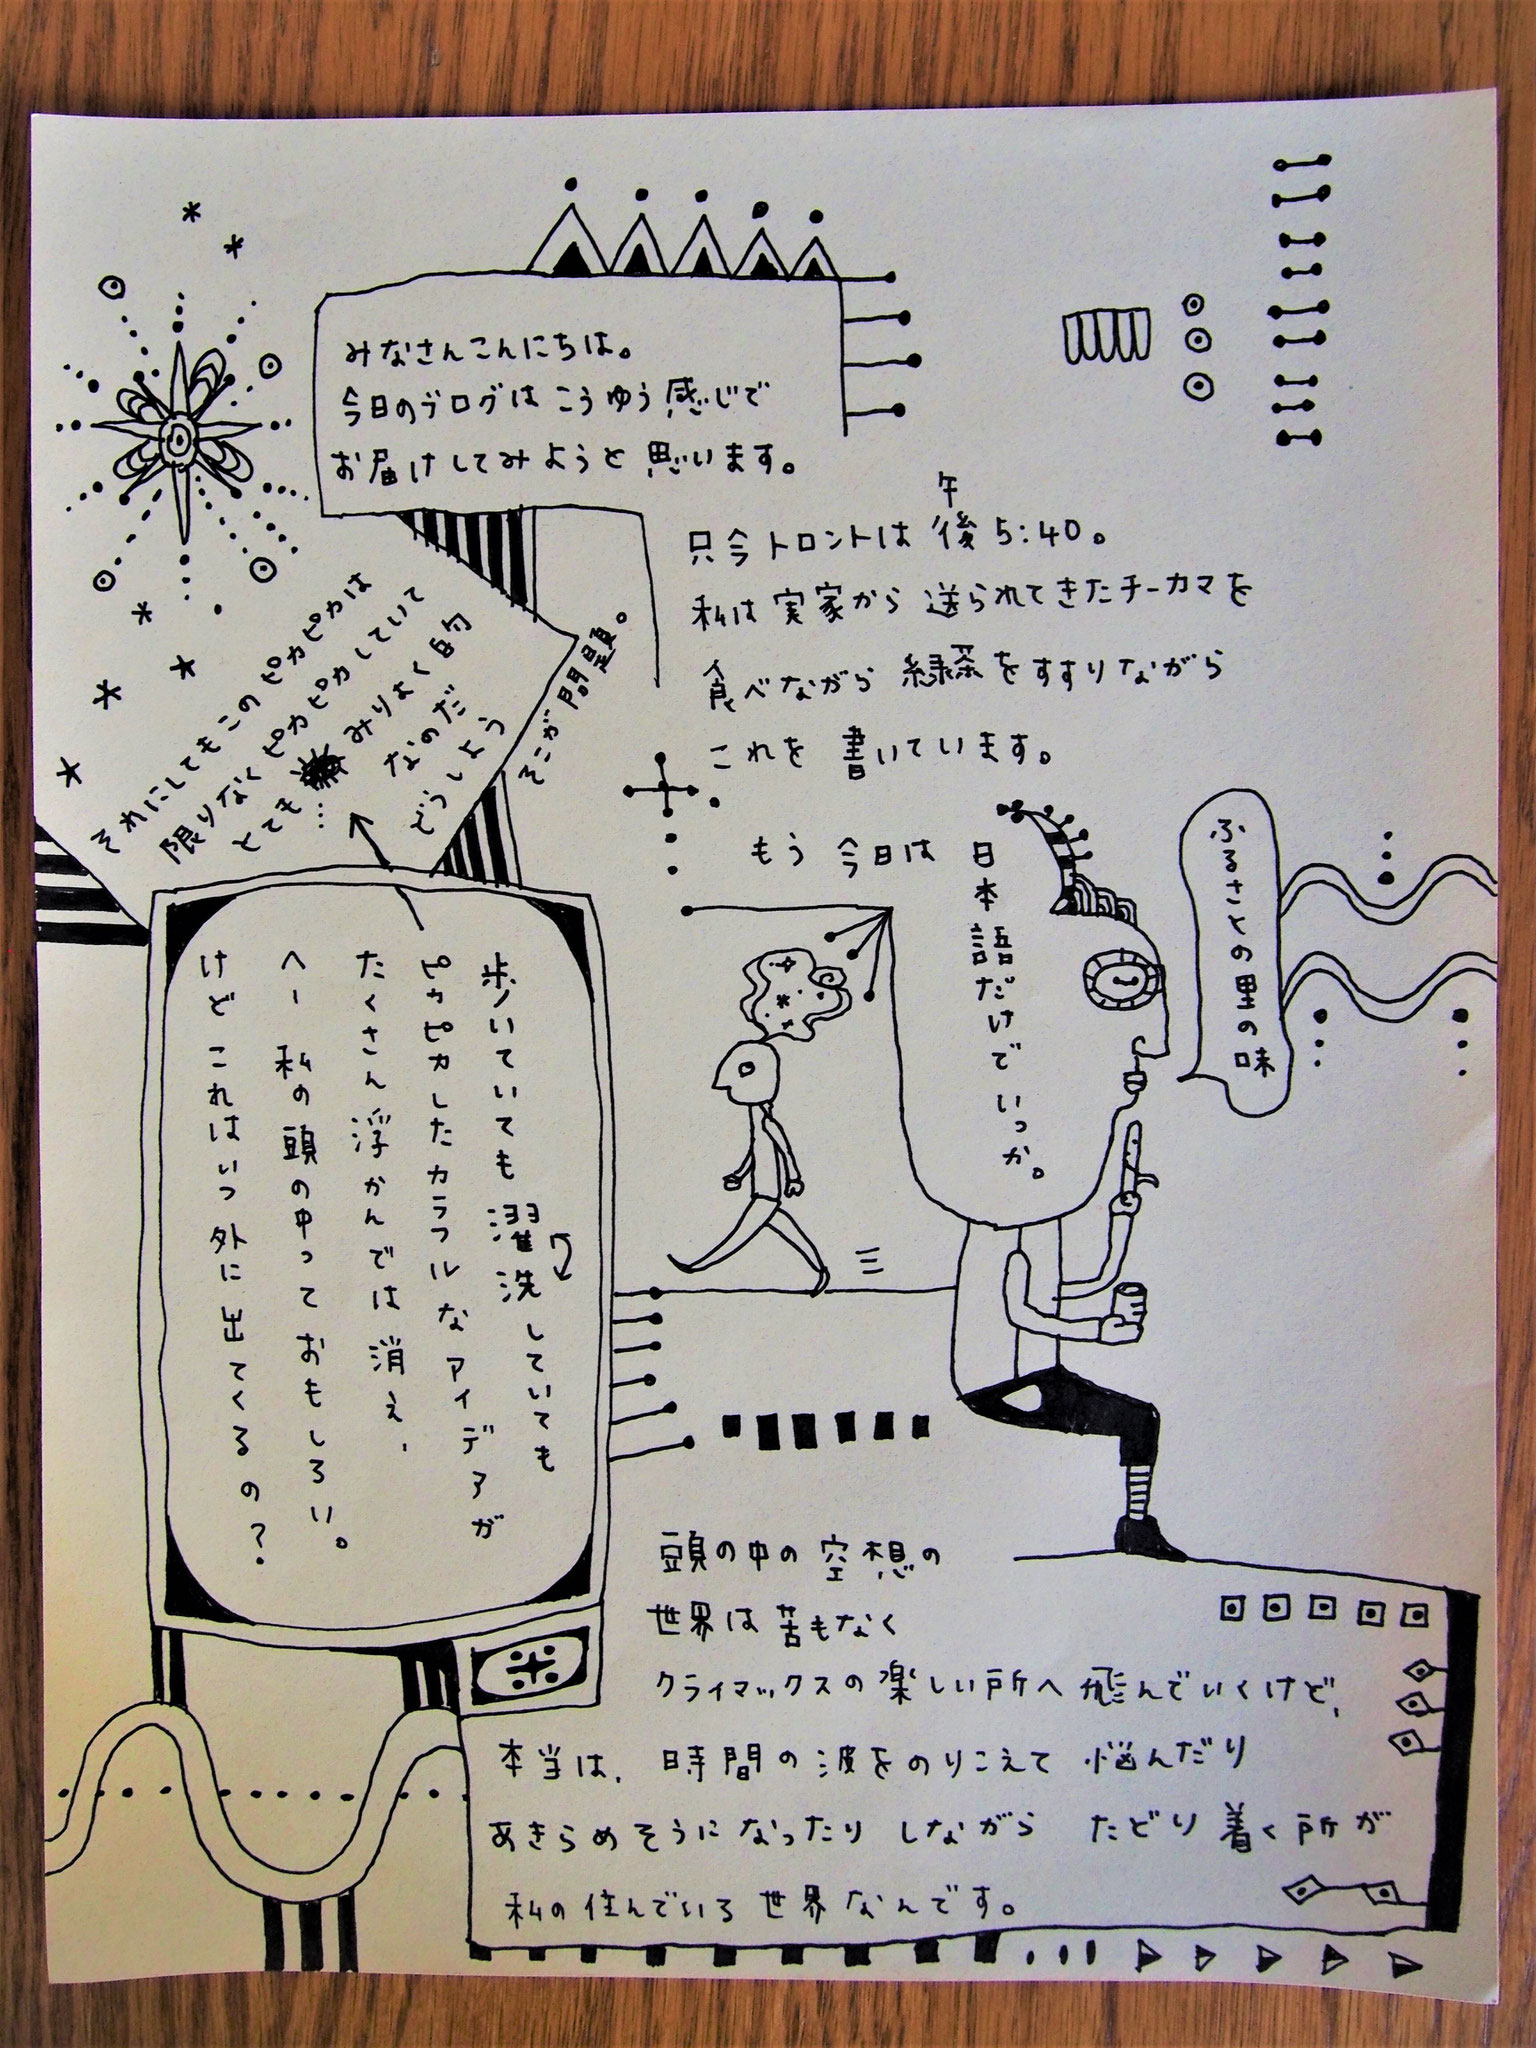 みなさんこんにちは。
今日のブログはこうゆう感じで
お届けしてみようと思います。
只今トロントは午後5:40。
私は実家から送られてきたチーカマを
食べながら緑茶をすすりながら
これを書いています。
もう今日は
日本語だけでいっか。
ふるさとの里の味
歩いていても濯洗していても
ピカピカしたカラフルなアイデアが
たくさん浮かんでは消え、
へー私の頭の中っておもしろい。
けどこれはいつ外に出てくるの?
それにしてもこのピカピカは
限りなくピカピカしていて
とても…みりょく的
なのだ
どうしよう
そこが問題。
頭の中の空想の
世界は苦もなく
クライマックスの楽しい所へ飛んでいくけど、
本当は、時間の波をのりこえて悩んだり
あきらめそうになったりしながらたどり着く所が
私の住んでいる世界なんです。